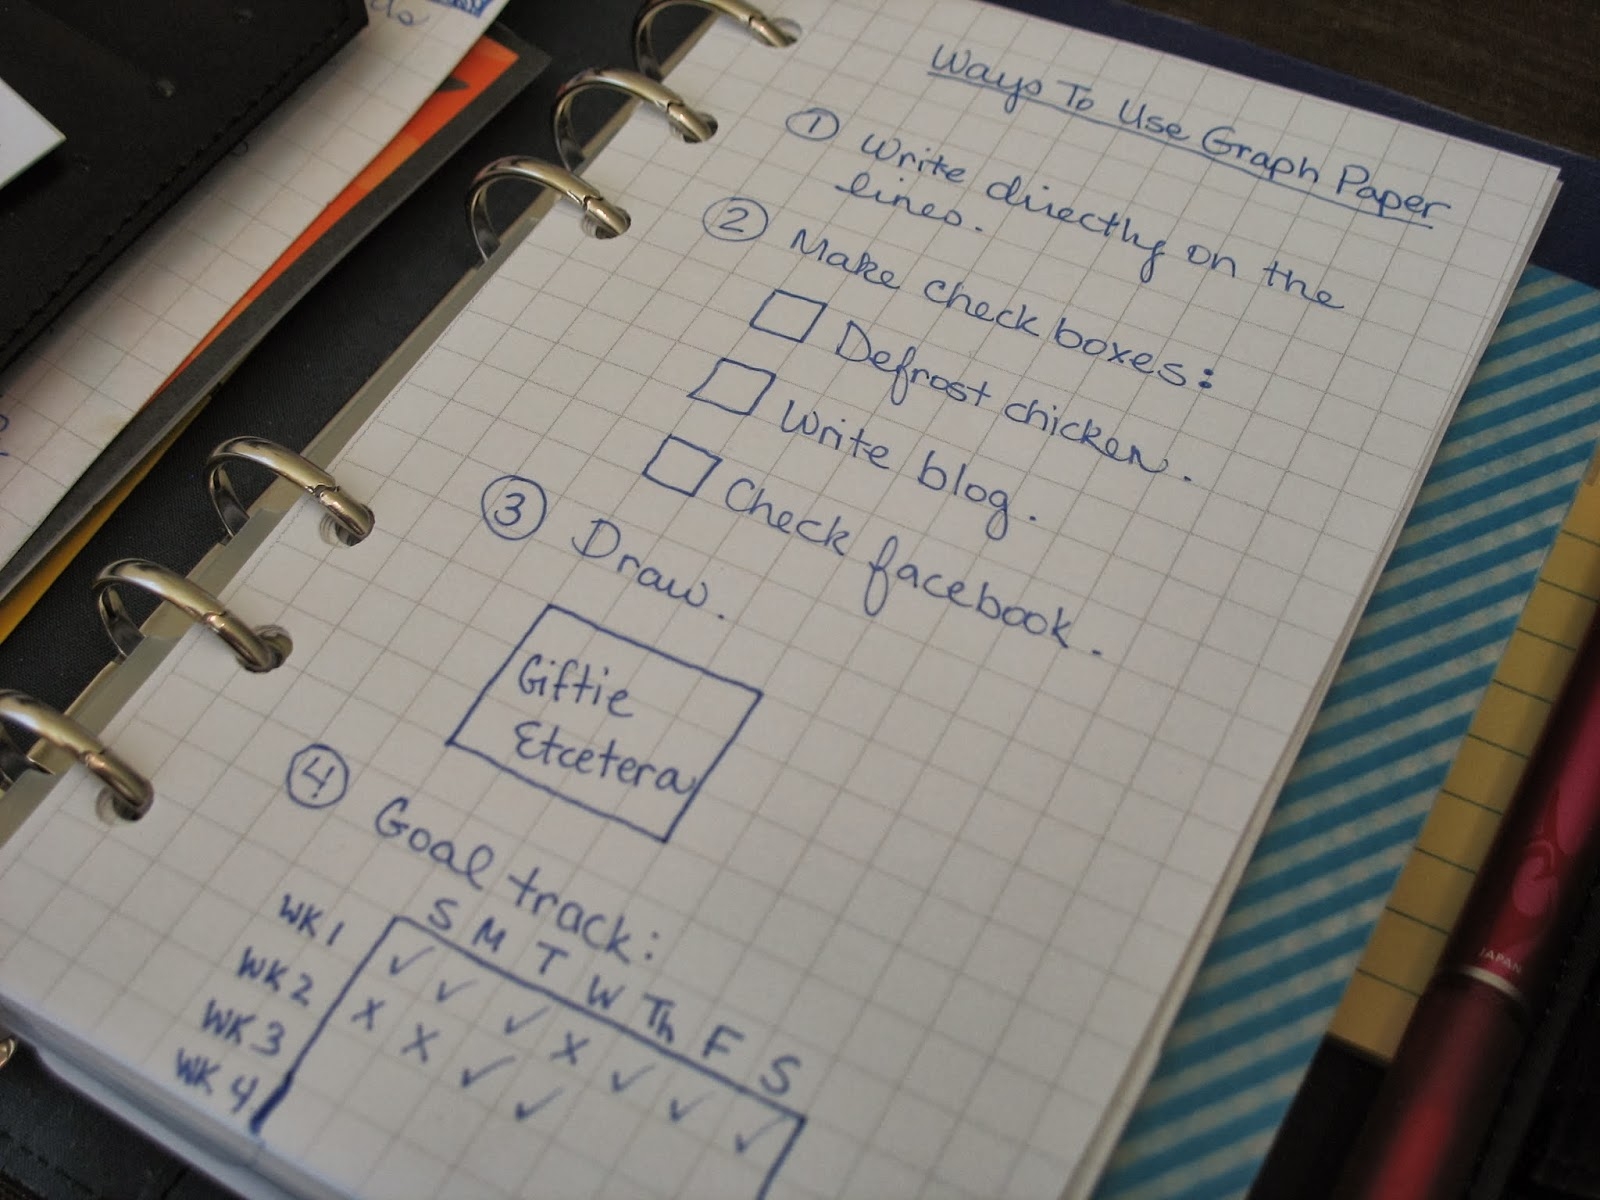 Ways To Use Graph Paper
1 Write directly on the
lines.
2 Make check boxes:
Defrost chicken.
Write blog.
Check facebook.
3 Draw.
Giftie
Etcetera
4 Goal track:
S M T W Th F S
WK 1 ✓ ✓ ✓ X ✓ ✓ ✓
WK 2 X X ✓ ✓
WK 3
WK 4
JAPAN